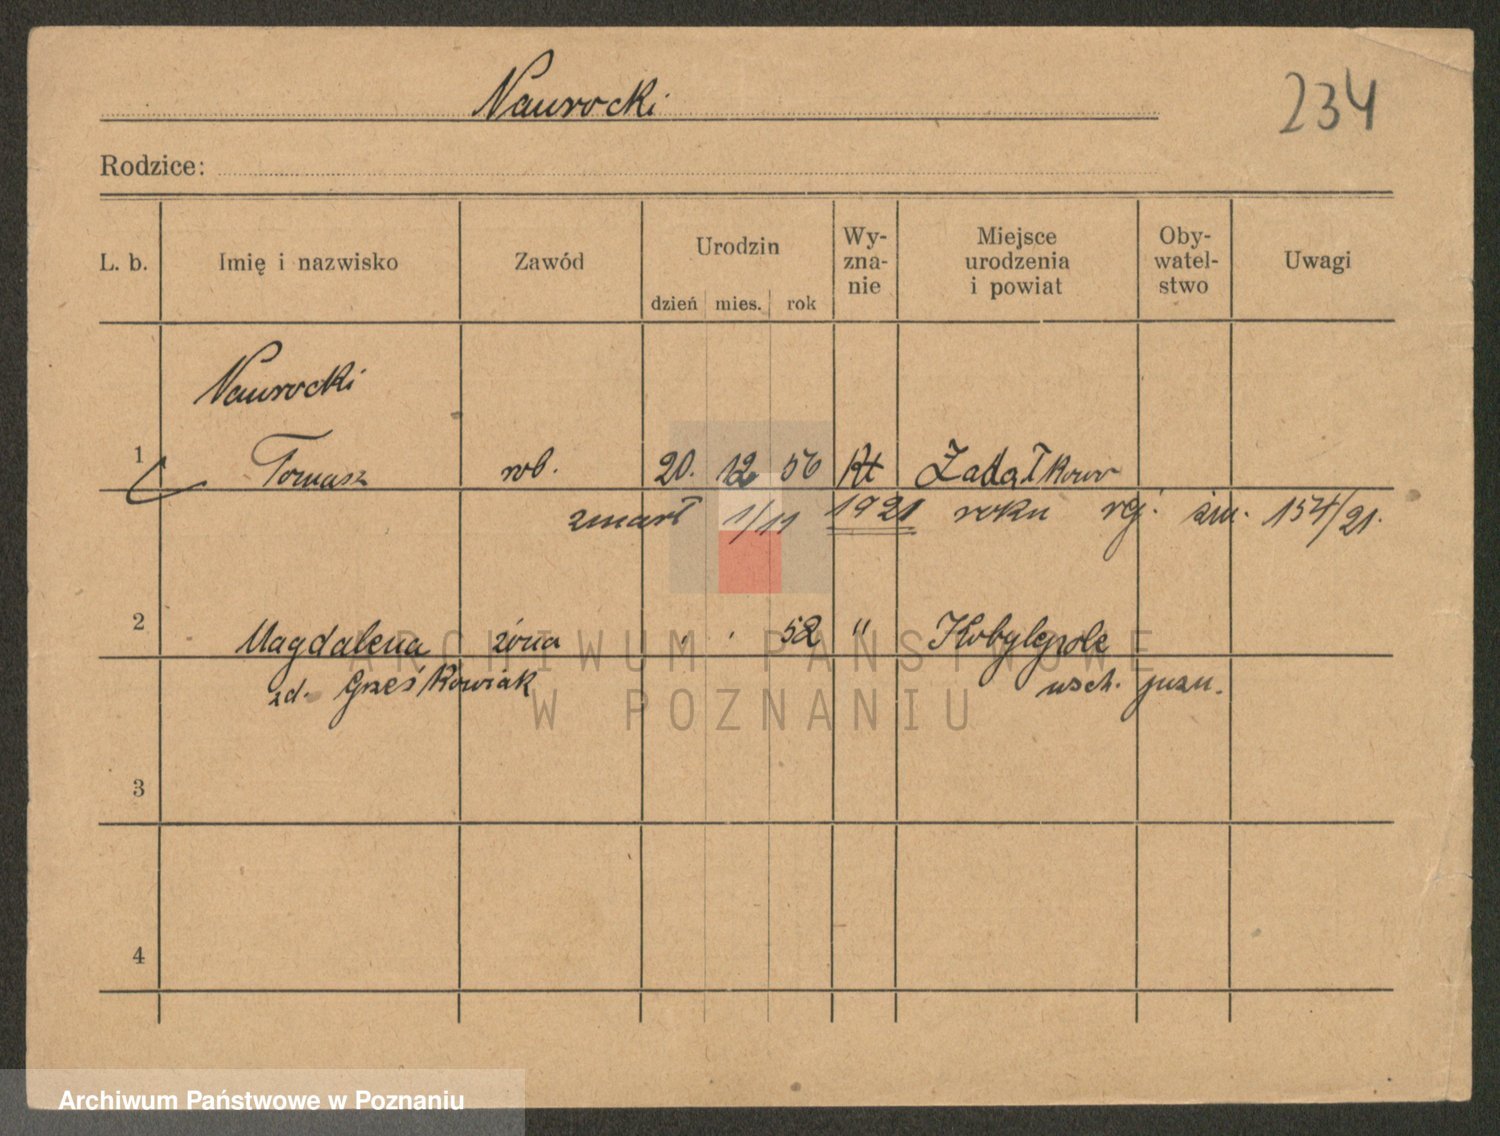 Nawrocki
234
Rodzice:
L. b. Imię i nazwisko Zawód Urodzin dzień mies. rok Wy-zna-nie Miejsce urodzenia i powiat Oby-watel-stwo Uwagi
Nawrocki
1 Tomasz rob. 20. 12 56 Kt
zmarł 1/11 1921 roku rej. zm. 154/21.
2 Magdalena żona " " 52 " Kobylepole
zd. Grześkowiak wsch. pozn.
3
4
ARCHIWUM PAŃSTWOWE
W POZNANIU
Archiwum Państwowe w Poznaniu